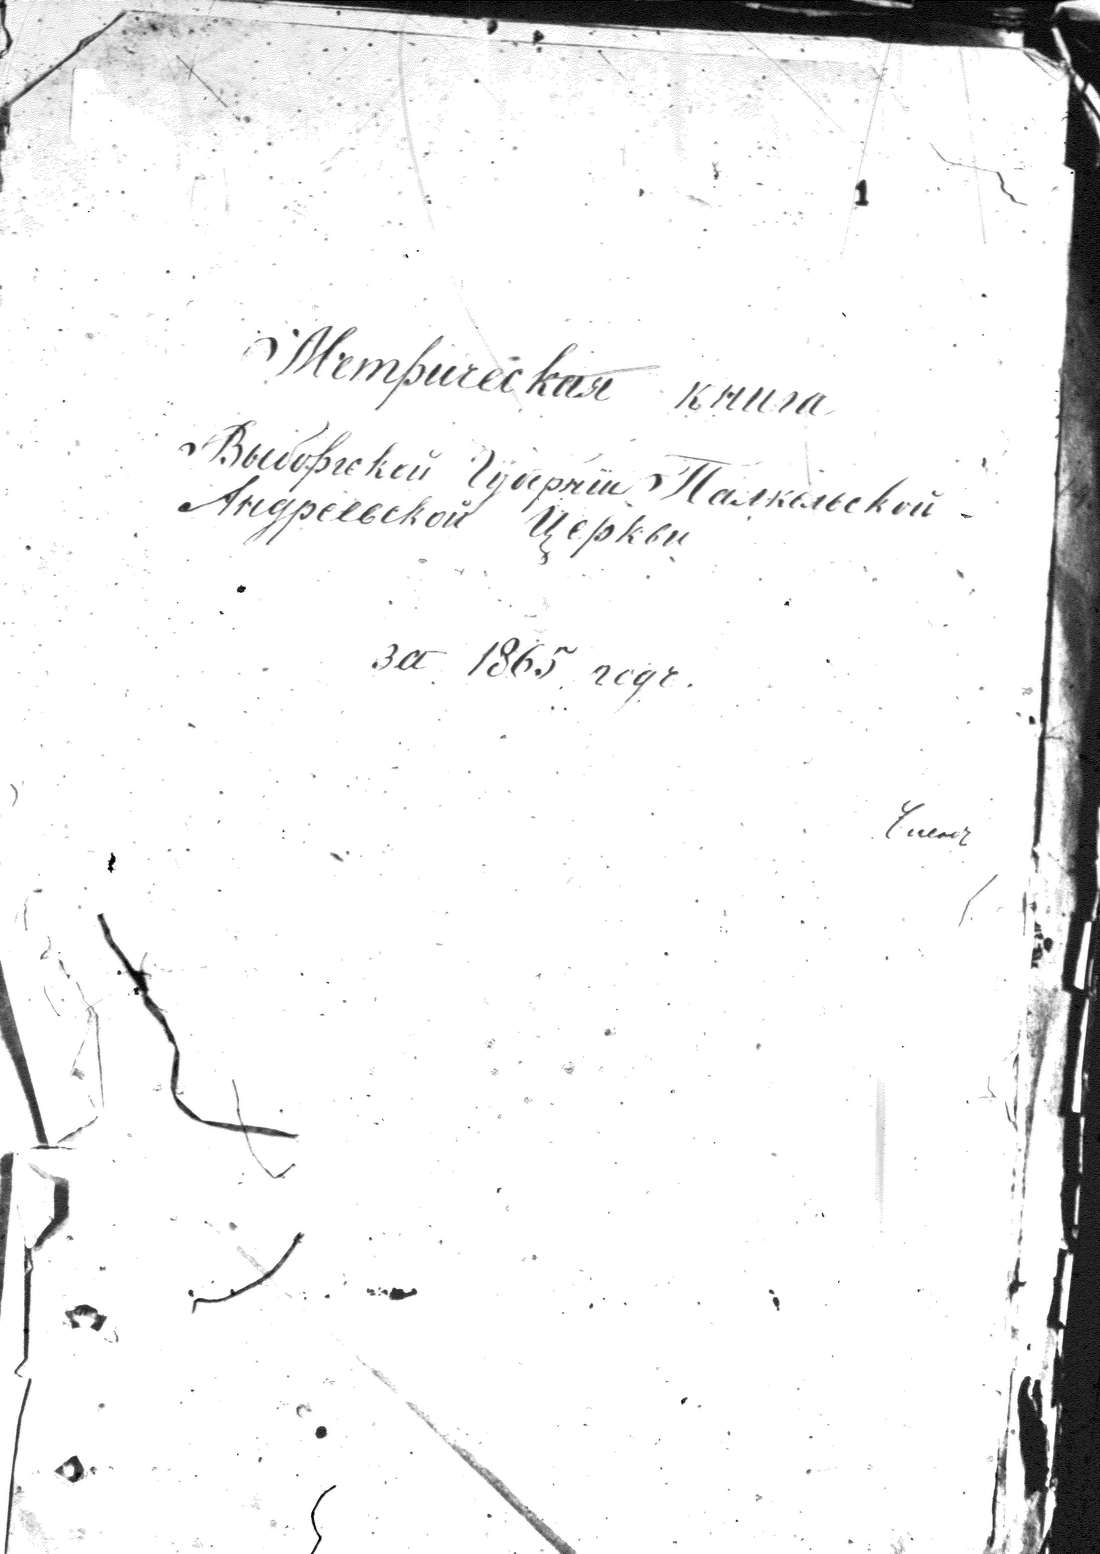 1
Метрическая книга
Выборгской Губернiи Палкельской -
Андреевской Церкви
за 1865 годъ.